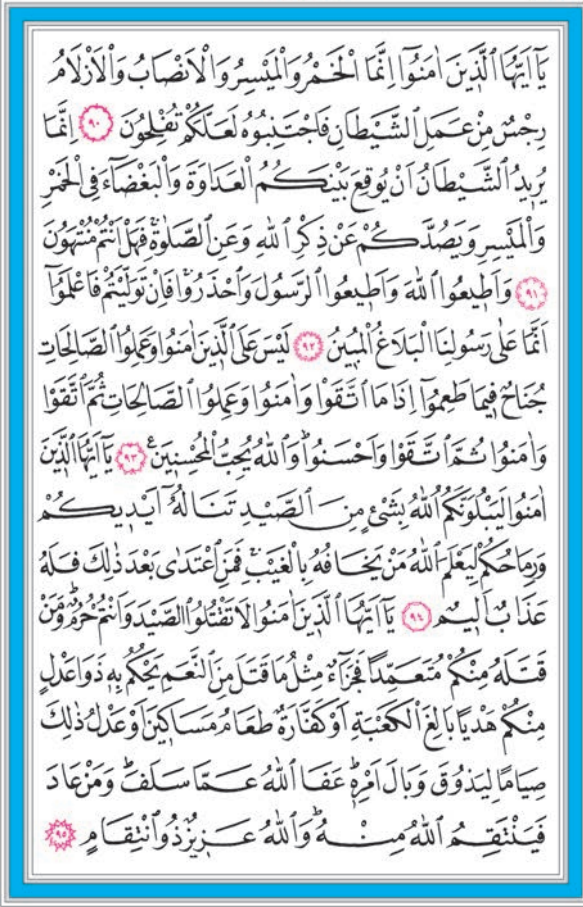 يَٓا اَيُّهَا الَّذٖينَ اٰمَنُٓوا اِنَّمَا الْخَمْرُ وَالْمَيْسِرُ وَالْاَنْصَابُ وَالْاَزْلَامُ
رِجْسٌ مِنْ عَمَلِ الشَّيْطَانِ فَاجْتَنِبُوهُ لَعَلَّكُمْ تُفْلِحُونَ ﴿٩٠﴾ اِنَّمَا
يُرٖيدُ الشَّيْطَانُ اَنْ يُوقِعَ بَيْنَكُمُ الْعَدَاوَةَ وَالْبَغْضَٓاءَ فِي الْخَمْرِ
وَالْمَيْسِرِ وَيَصُدَّكُمْ عَنْ ذِكْرِ اللّٰهِ وَعَنِ الصَّلٰوةِۚ فَهَلْ اَنْتُمْ مُنْتَهُونَ
﴿٩١﴾ وَاَطٖيعُوا اللّٰهَ وَاَطٖيعُوا الرَّسُولَ وَاحْذَرُواۚ فَاِنْ تَوَلَّيْتُمْ فَاعْلَمُٓوا
اَنَّمَا عَلٰى رَسُولِنَا الْبَلَاغُ الْمُبٖينُ ﴿٩٢﴾ لَيْسَ عَلَى الَّذٖينَ اٰمَنُوا وَعَمِلُوا الصَّالِحَاتِ
جُنَاحٌ فٖيمَا طَعِمُٓوا اِذَا مَا اتَّقَوْا وَاٰمَنُوا وَعَمِلُوا الصَّالِحَاتِ ثُمَّ اتَّقَوْا
وَاٰمَنُوا ثُمَّ اتَّقَوْا وَاَحْسَنُواؕ وَاللّٰهُ يُحِبُّ الْمُحْسِنٖينَࣖ ﴿٩٣﴾ يَٓا اَيُّهَا الَّذٖينَ
اٰمَنُوا لَيَبْلُوَنَّكُمُ اللّٰهُ بِشَیْءٍ مِنَ الصَّيْدِ تَنَالُهُٓ اَيْدٖيكُمْ
وَرِمَاحُكُمْ لِيَعْلَمَ اللّٰهُ مَنْ يَخَافُهُ بِالْغَيْبِۚ فَمَنِ اعْتَدٰى بَعْدَ ذٰلِكَ فَلَهُ
عَذَابٌ اَلٖيمٌ ﴿٩٤﴾ يَٓا اَيُّهَا الَّذٖينَ اٰمَنُوا لَا تَقْتُلُوا الصَّيْدَ وَاَنْتُمْ حُرُمٌؕ وَمَنْ
قَتَلَهُ مِنْكُمْ مُتَعَمِّدًا فَجَزَٓاءٌ مِثْلُ مَا قَتَلَ مِنَ النَّعَمِ يَحْكُمُ بِهٖ ذَوَا عَدْلٍ
مِنْكُمْ هَدْيًا بَالِغَ الْكَعْبَةِ اَوْ كَفَّارَةٌ طَعَامُ مَسَاكٖينَ اَوْ عَدْلُ ذٰلِكَ
صِيَامًا لِيَذُوقَ وَبَالَ اَمْرِهٖؕ عَفَا اللّٰهُ عَمَّا سَلَفَؕ وَمَنْ عَادَ
فَيَنْتَقِمُ اللّٰهُ مِنْهُؕ وَاللّٰهُ عَزٖيزٌ ذُو انْتِقَامٍ ﴿٩٥﴾